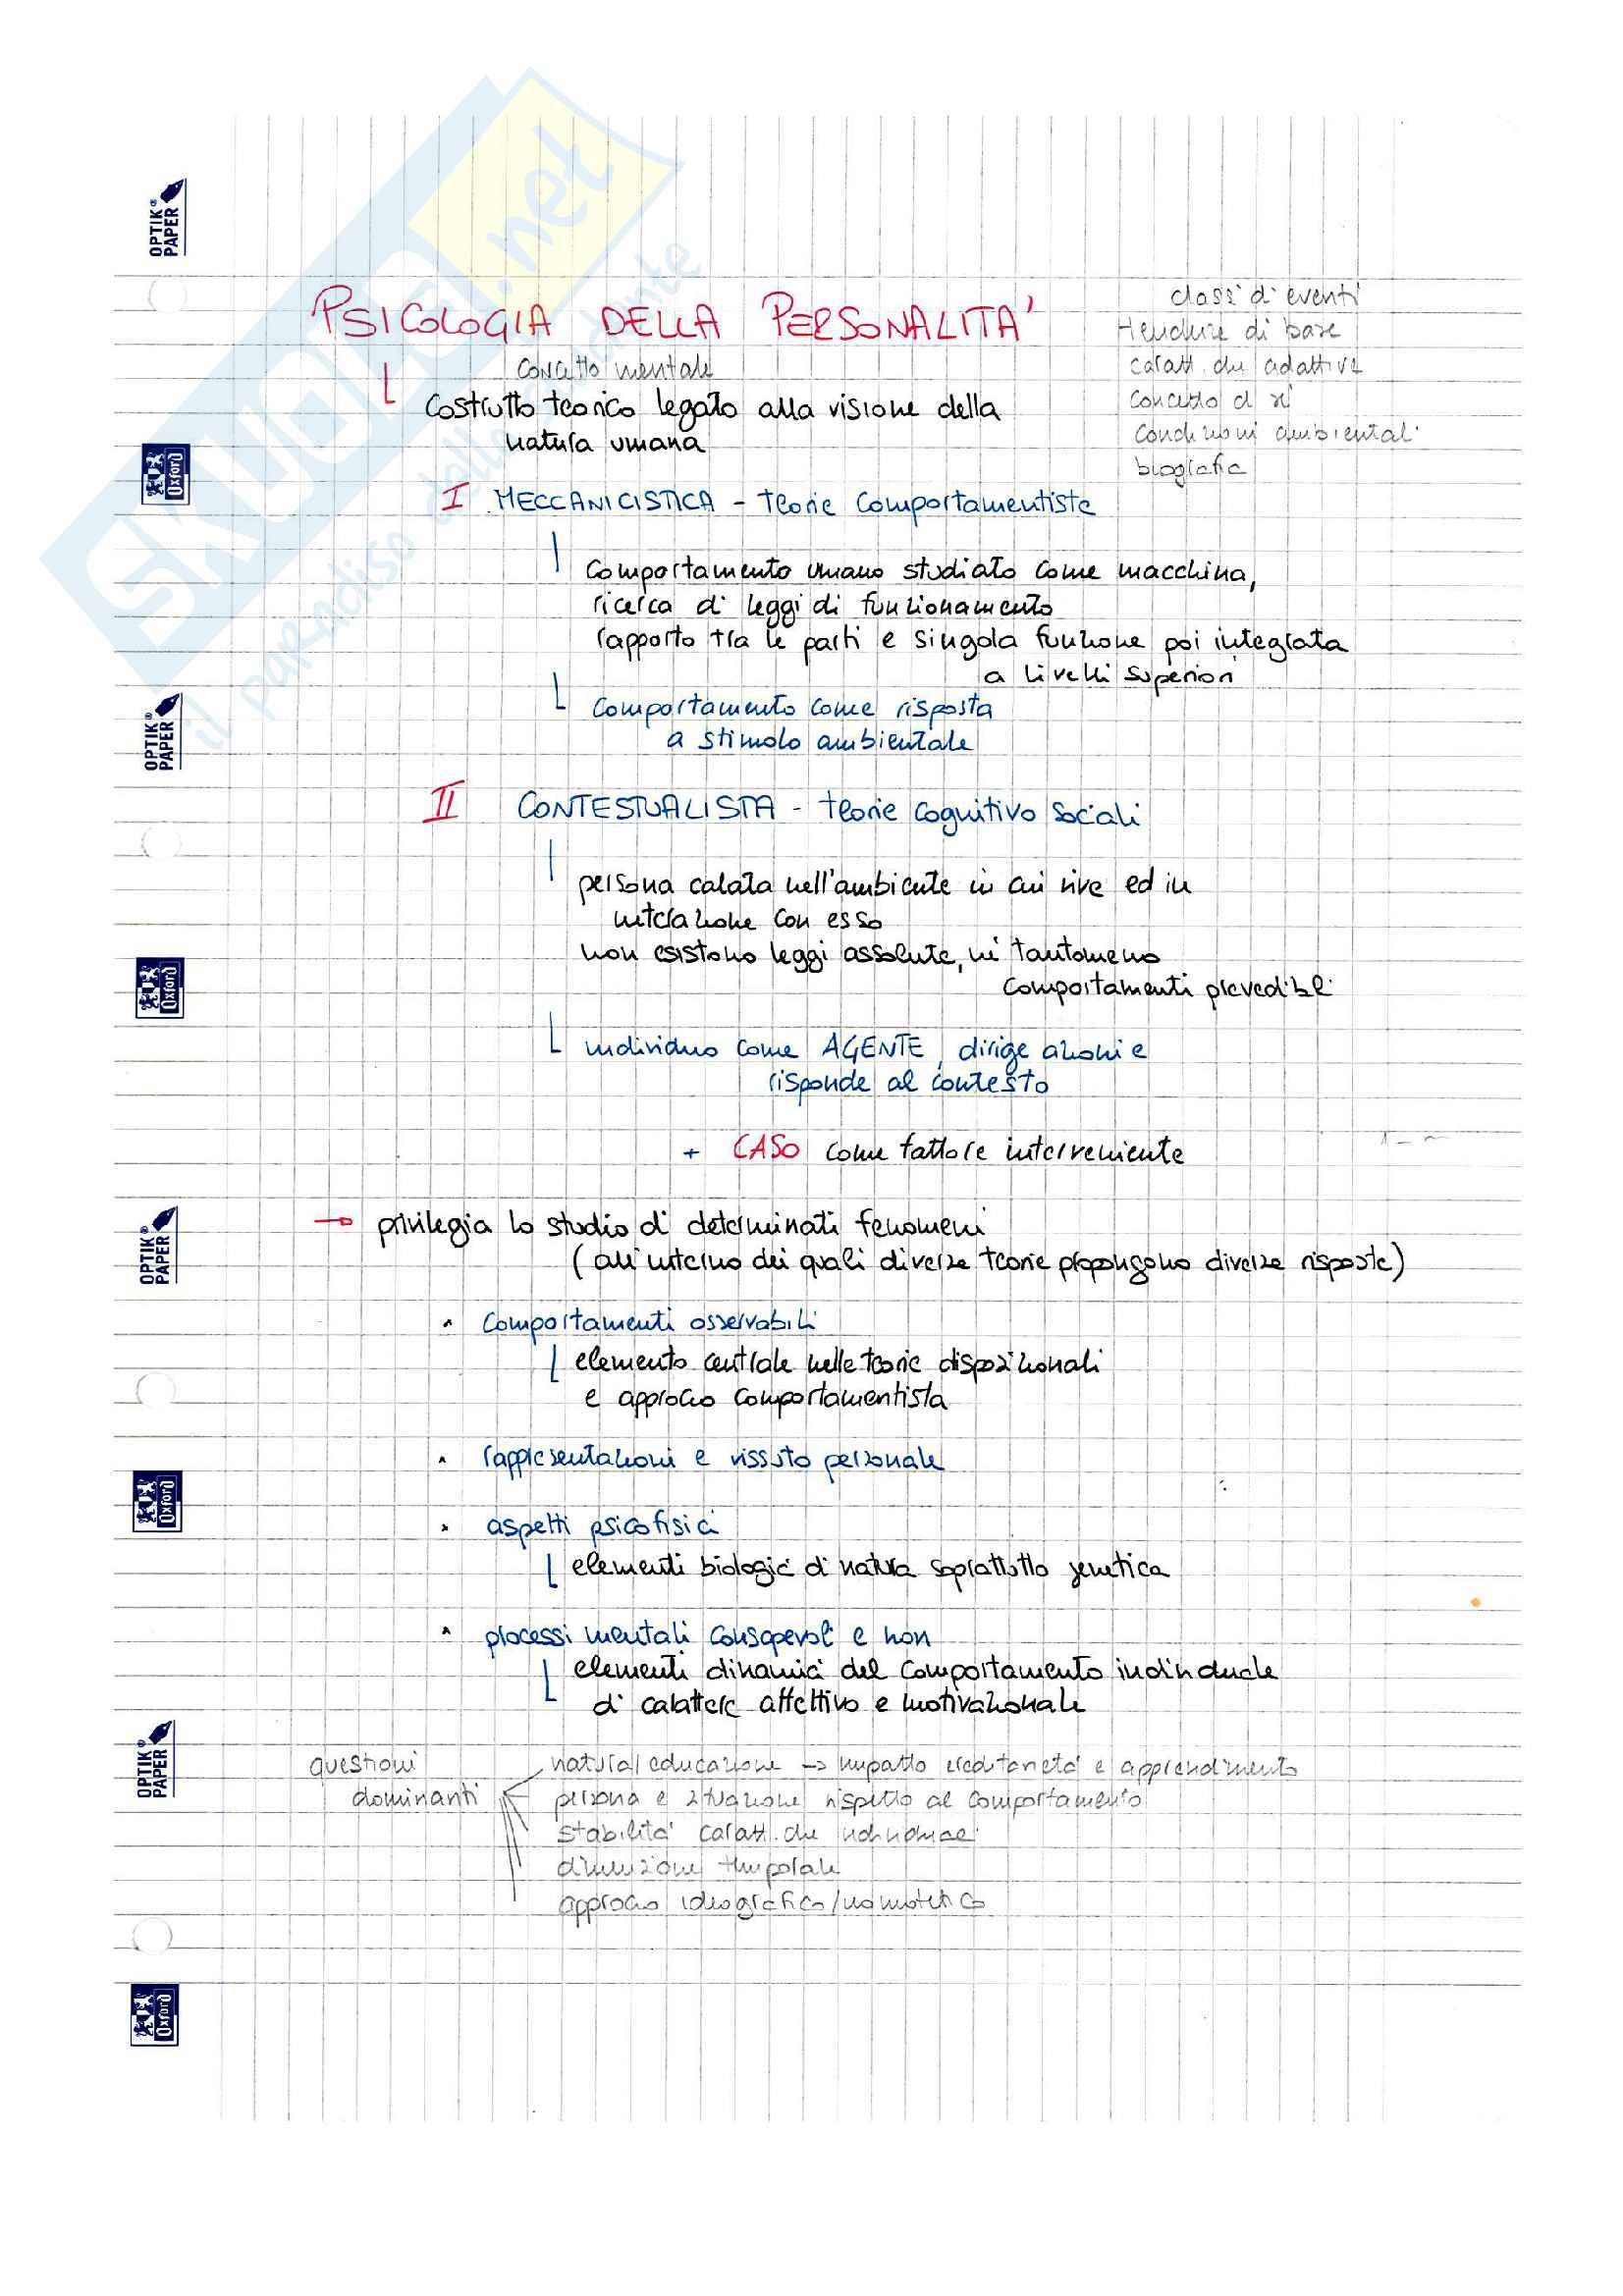 SKUOLA.net
il paradiso dello studente
OPTIK PAPER
Oxford
OPTIK PAPER
Oxford
OPTIK PAPER
Oxford
OPTIK PAPER
Oxford
PSICOLOGIA DELLA PERSONALITA'
classi di eventi
di base
caratt.che adattive
concetto di sé
condizioni ambientali
biografia
concetto mentale
costrutto teorico legato alla visione della
natura umana
I MECCANICISTICA - teorie comportamentiste
comportamento umano studiato come macchina,
ricerca di leggi di funzionamento
rapporto tra le parti e singola funzione poi integrata
a livelli superiori
comportamento come risposta
a stimolo ambientale
II CONTESTUALISTA - teorie cognitivo sociali
persona calata nell'ambiente in cui vive ed in
interazione con esso
non esistono leggi assolute, né tantomeno
comportamenti prevedibili
individuo come AGENTE, dirige azioni e
risponde al contesto
+ CASO come fattore interveniente
→ privilegia lo studio di determinati fenomeni
(all'interno dei quali diverse teorie propongono diverse risposte)
• comportamenti osservabili
elemento centrale nelle teorie disposizionali
e approccio comportamentista
• rappresentazioni e vissuto personale
• aspetti psicofisici
elementi biologici di natura soprattutto genetica
• processi mentali consapevoli e non
elementi dinamici del comportamento individuale
di carattere affettivo e motivazionale
questioni
dominanti
natura/educazione → impatto ereditarietà e apprendimento
persona e situazione rispetto al comportamento
stabilità caratt.che individuali
dimensione temporale
approccio ideografico/nomotetico